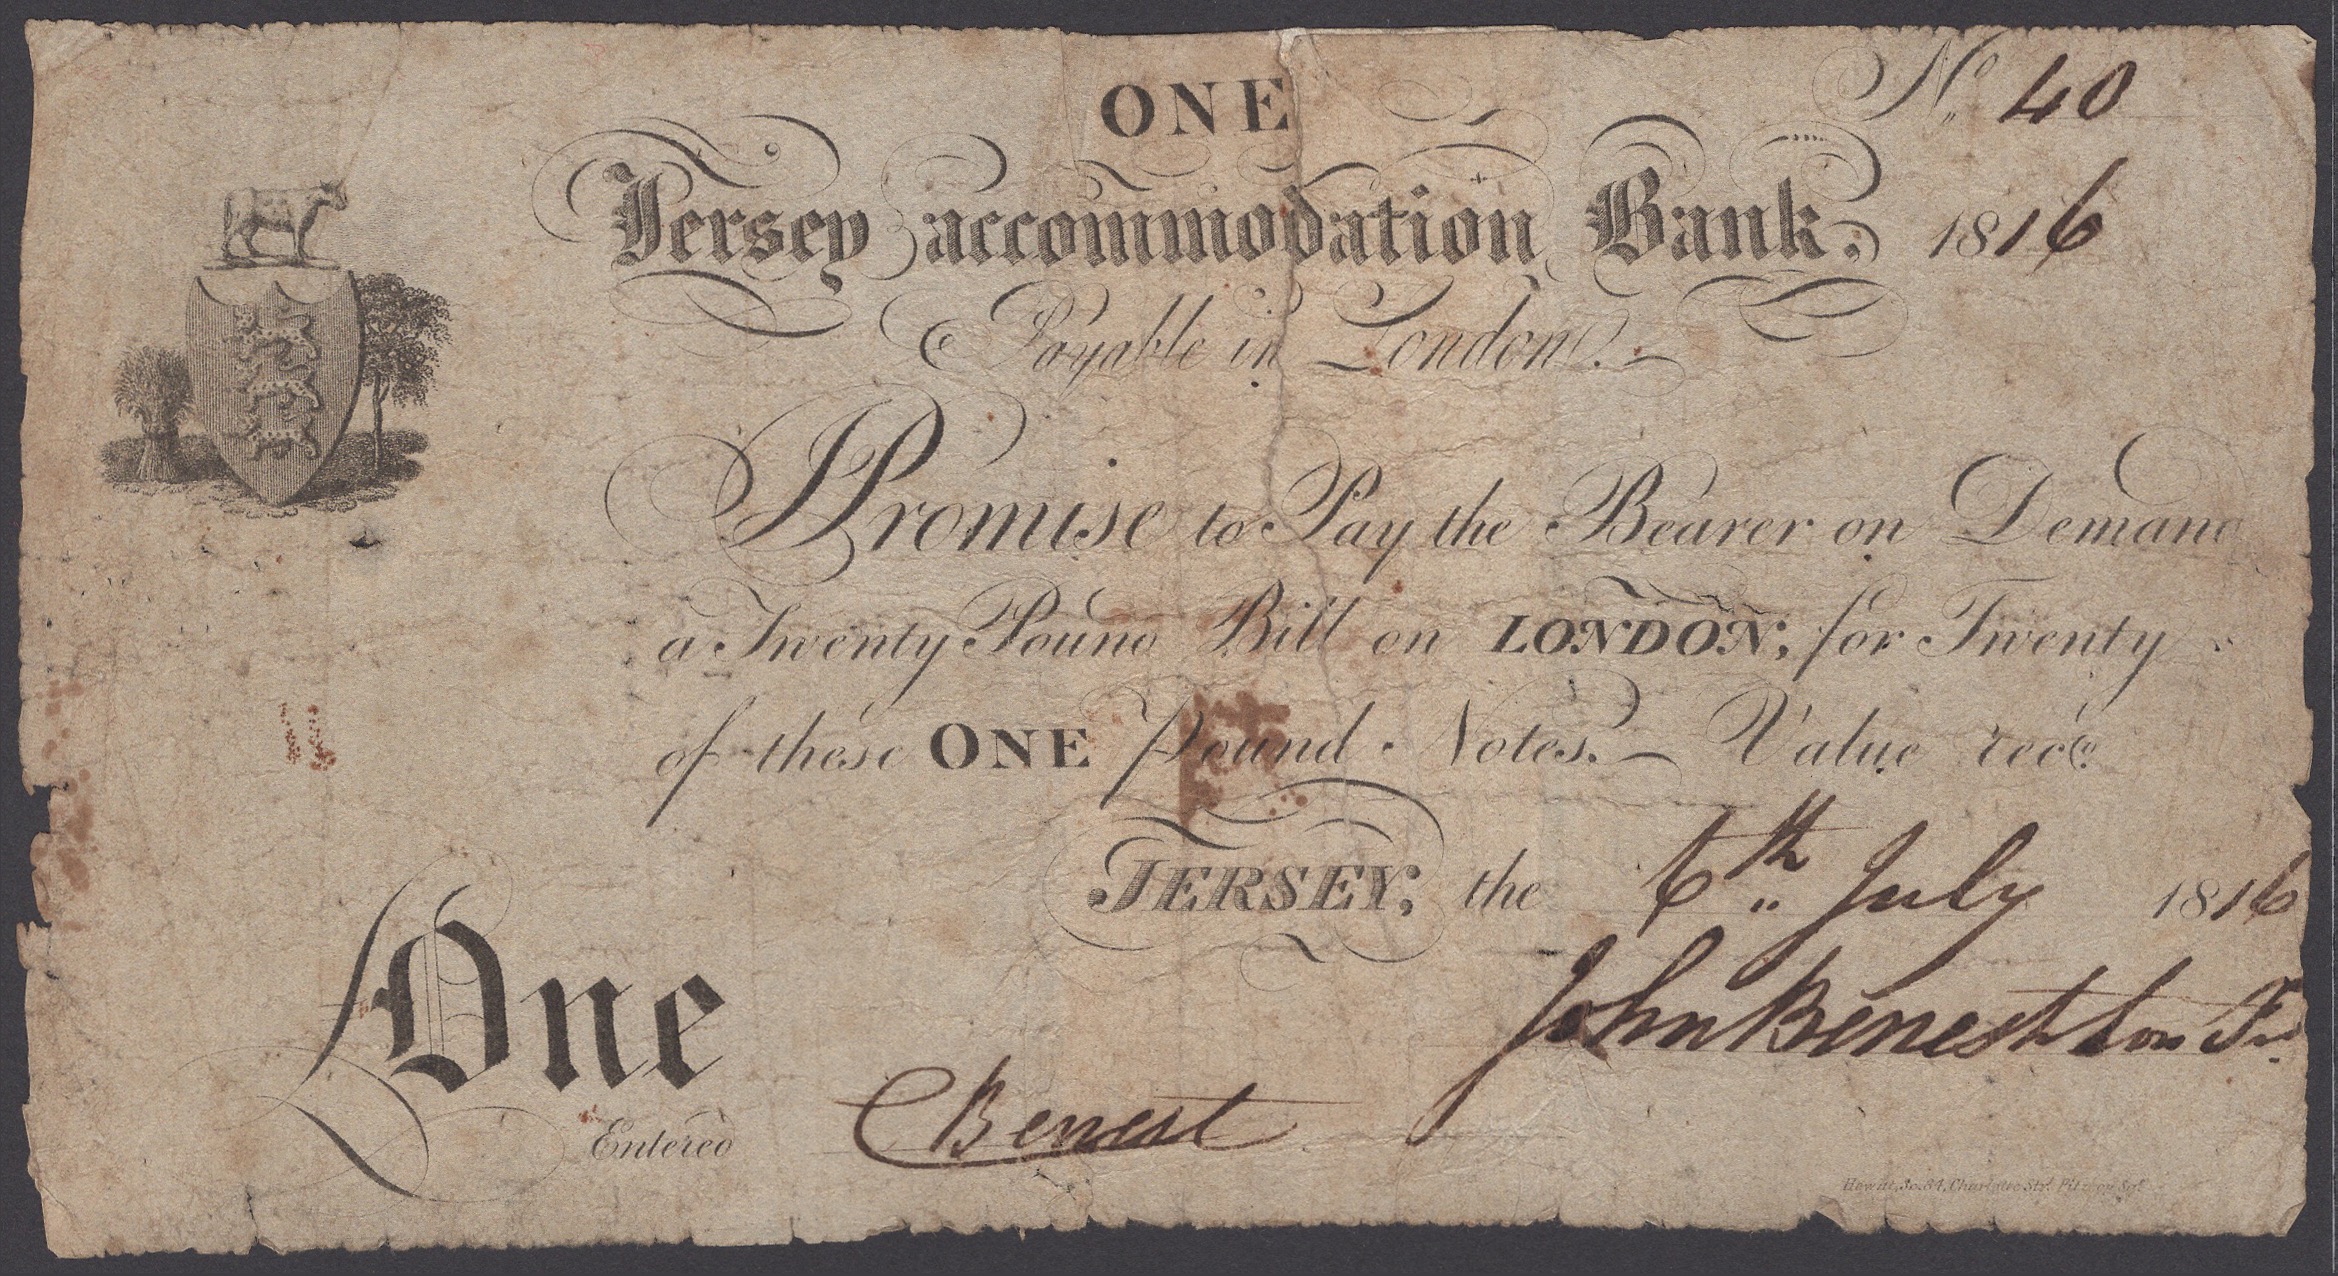 ONE
No 40
Jersey accommodation Bank. 1816
Payable in London.
I Promise to Pay the Bearer on Demand
a Twenty Pound Bill on LONDON, for Twenty
of these ONE Pound Notes. Value recd.
JERSEY, the 6th July 1816
John Benest
One
Entered Benest
Hewitt, Sc. 84, Charlotte Stt. Fitzroy Sqe.